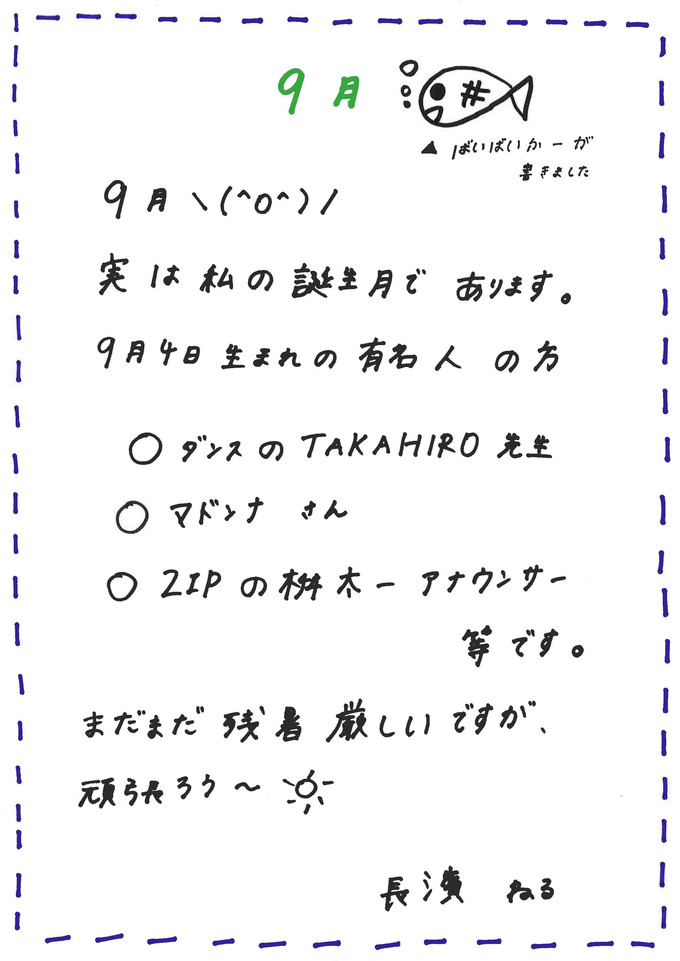 9月
▲ ばいばいかーが
書きました
9月 \(^o^)/
実は私の誕生月であります。
9月4日生まれの有名人の方
○ ダンスのTAKAHIRO先生
○ マドンナさん
○ ZIPの桝太一アナウンサー
等です。
まだまだ残暑厳しいですが、
頑張ろう〜
長濱ねる